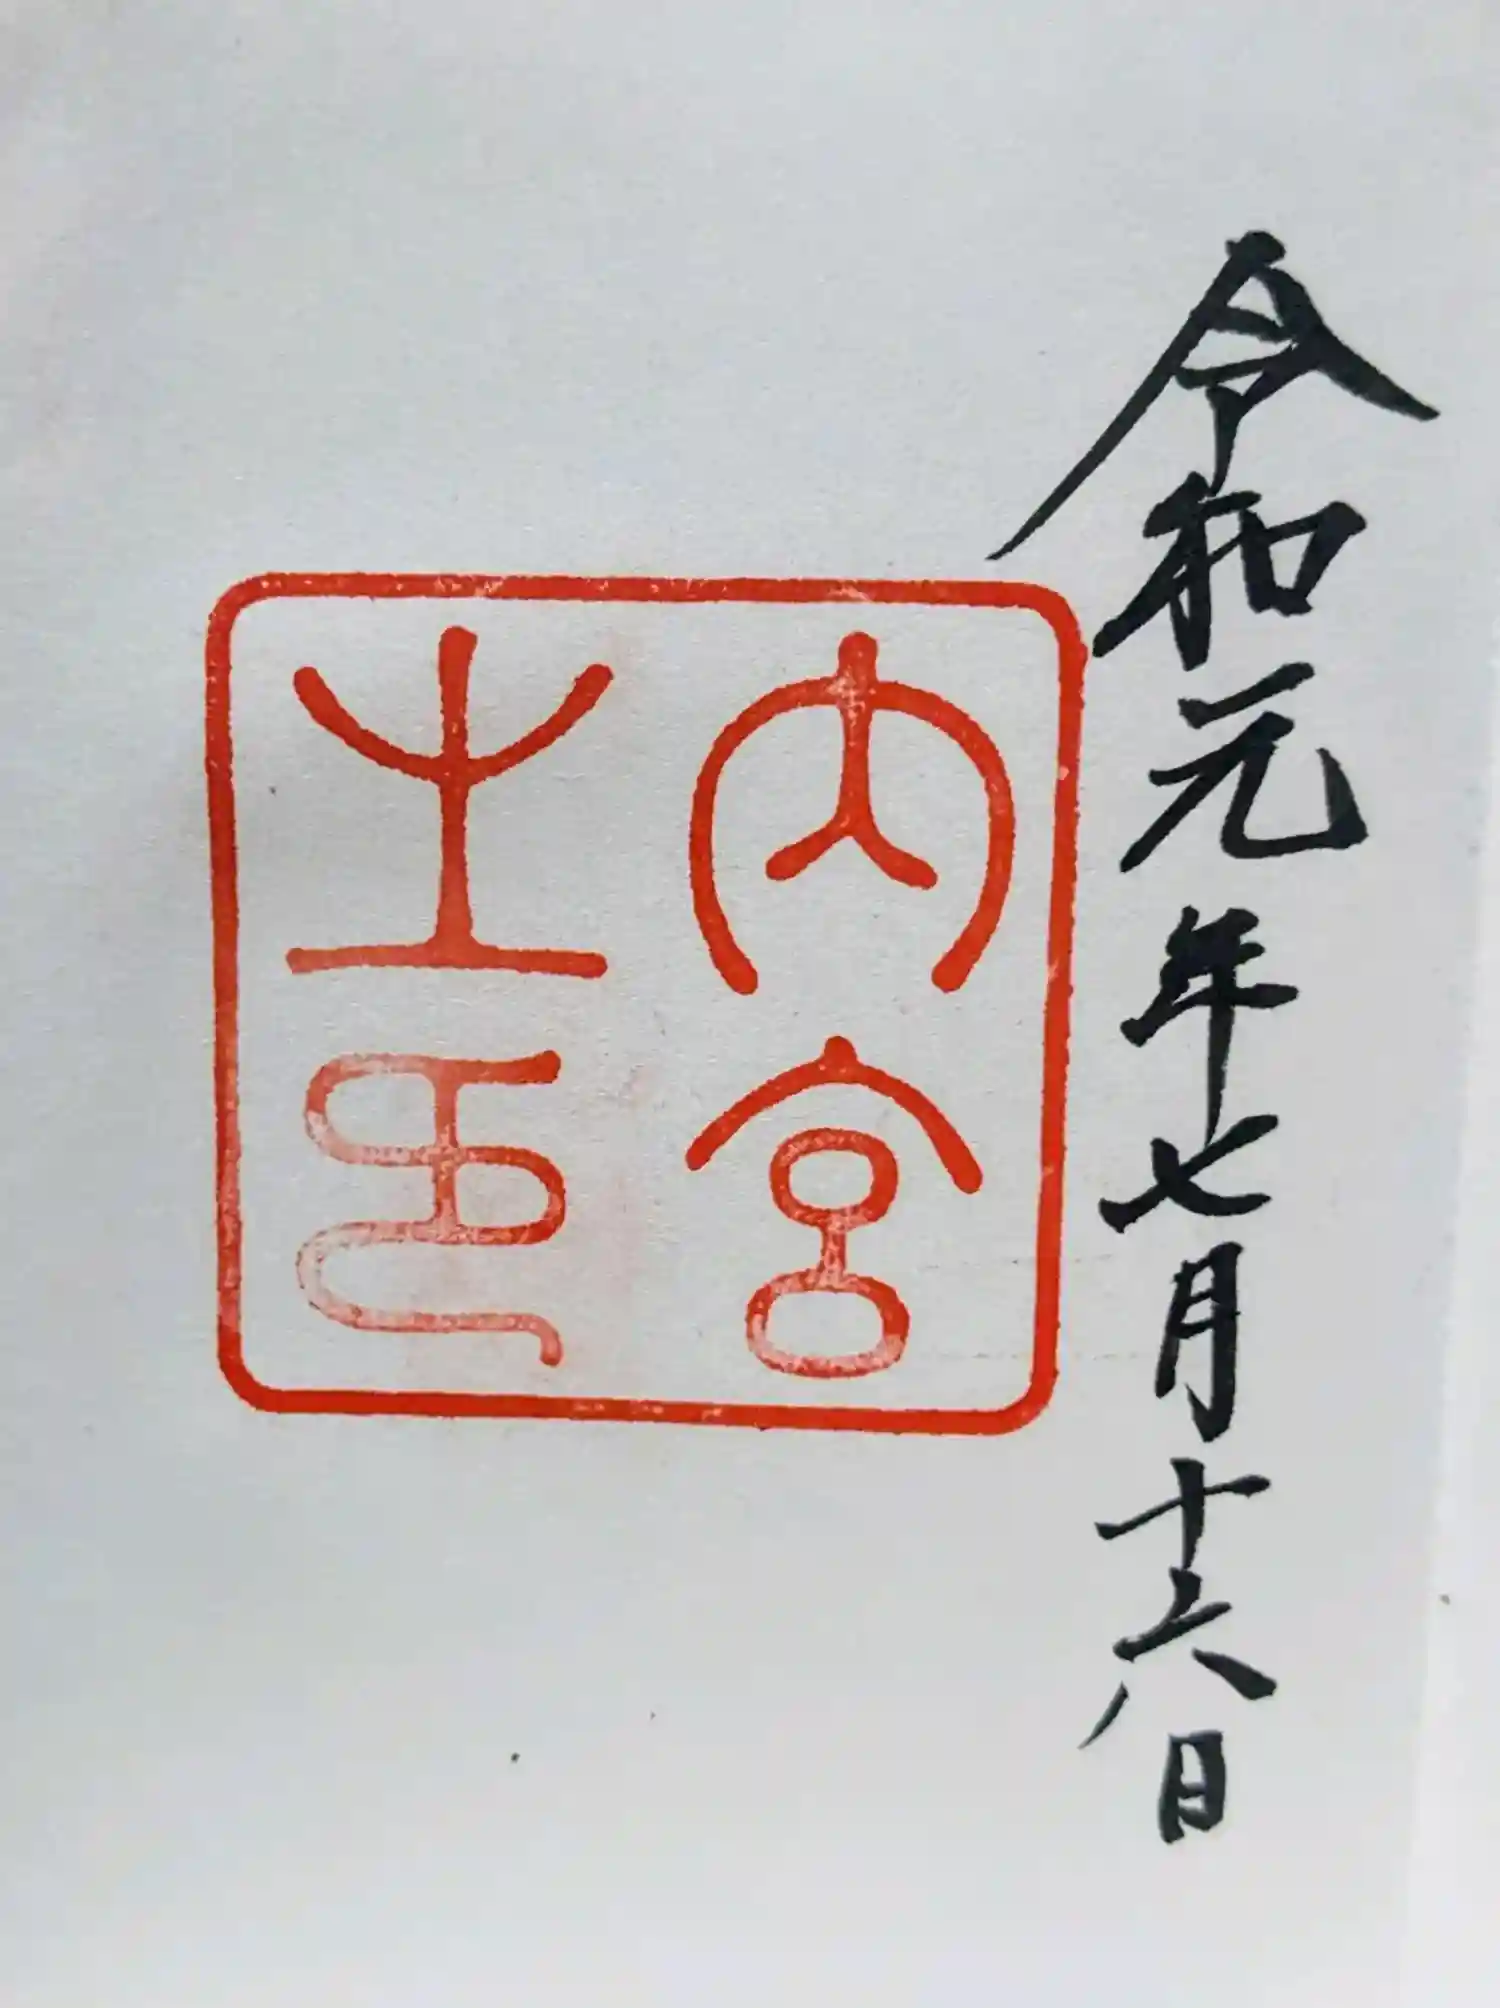 令和元年七月十六日
内宮
之印